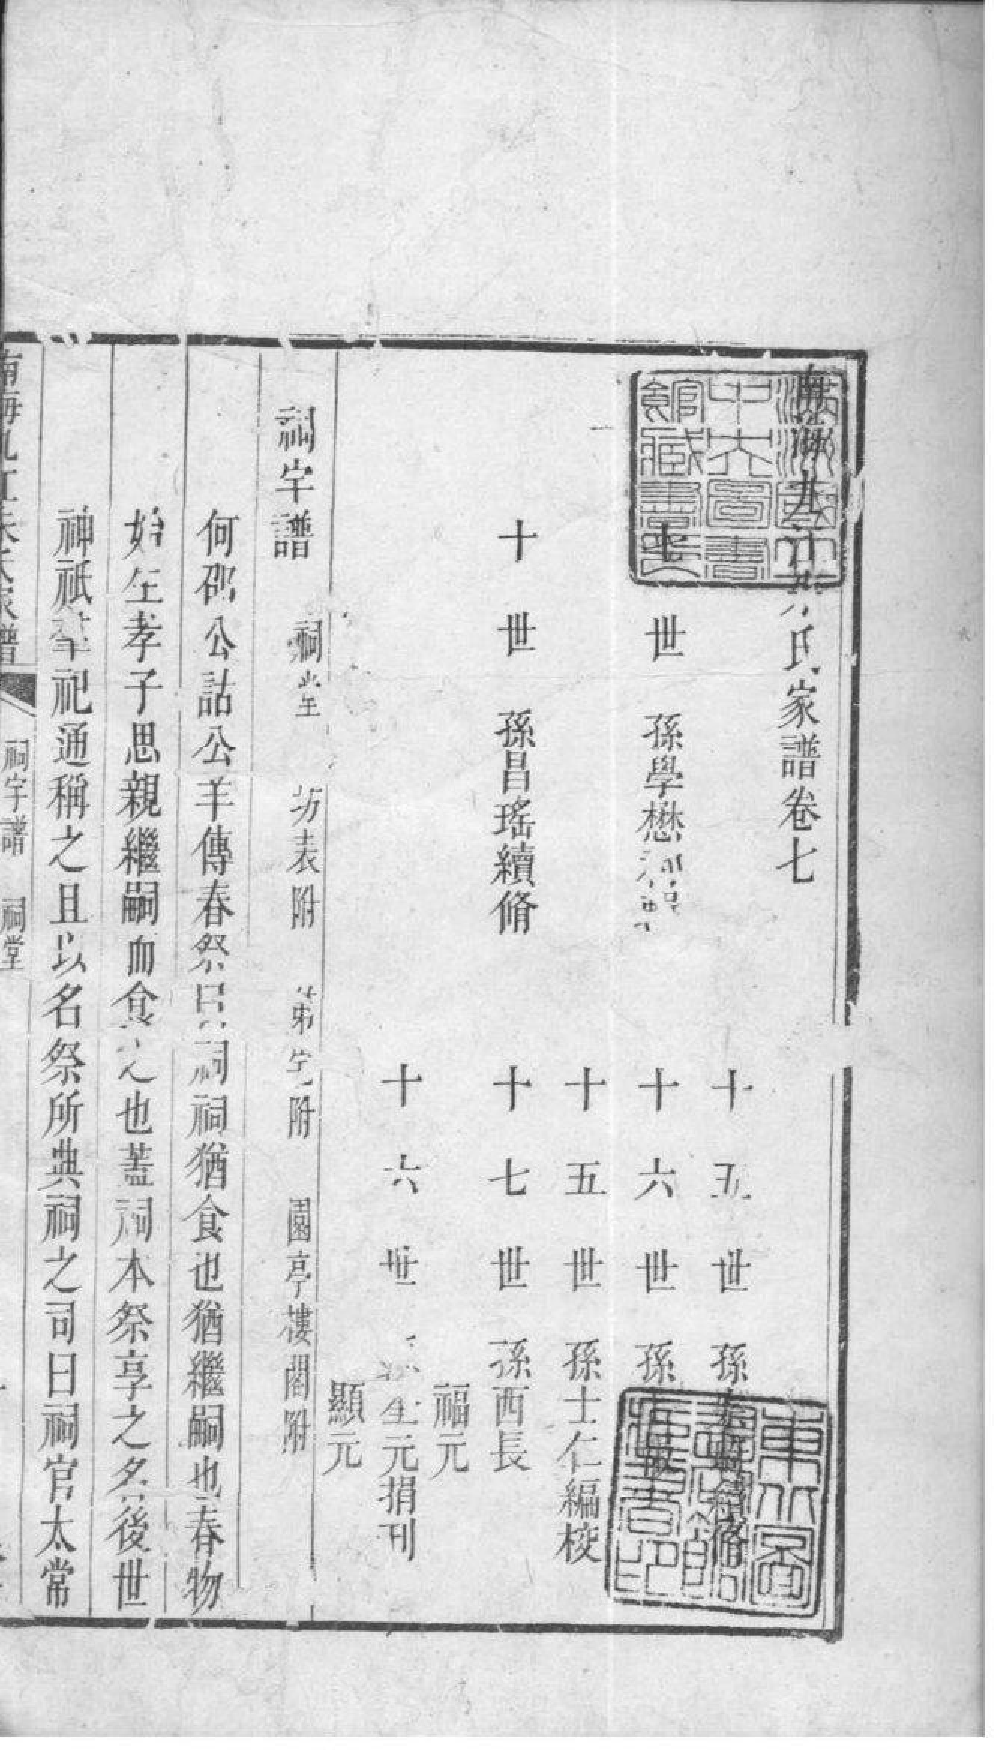 南海九江朱氏家譜卷七
世 孫學懋
十世 孫昌瑤續脩
十五世 孫 續脩
十六世 孫
十五世 孫士仁編校
十七世 孫西長
福元
十六世 孫 元捐刊
顯元
祠宇譜 祠堂 坊表附 第宅附 園亭樓閣附
何邵公詁公羊傳春祭曰祠祠猶食也猶繼嗣也春物
始生孝子思親繼嗣而食之也蓋祠本祭享之名後世
神祇羣祀通稱之且以名祭所典祠之司曰祠官太常
南海九江朱氏家譜 祠宇譜 祠堂
中央圖書館藏書